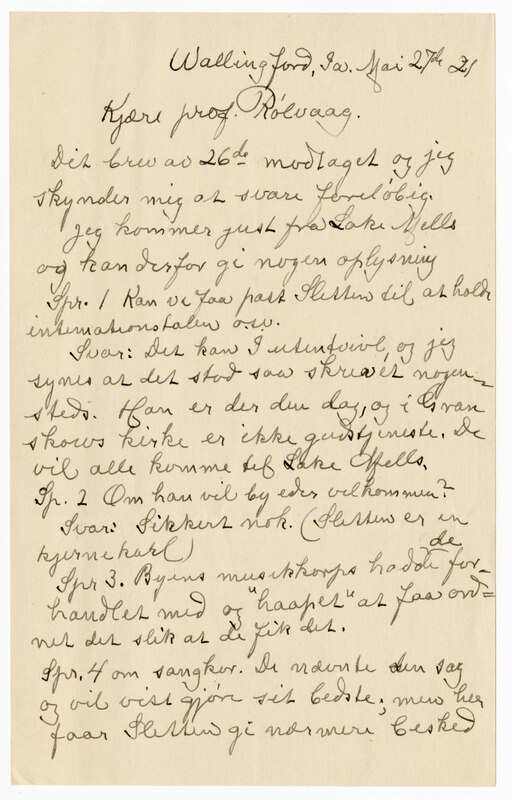 Wallingford, Ia. Mai 27de 21
Kjære prof. Rölvaag.
Dit brev av 26de modtaget og jeg
skynder mig at svare foreløbig.
Jeg kommer just fra Lake Mells
og kan derfor gi nogen oplysning
Spr. 1 Kan vi faa past Sletten til at holde
invitationstalen osv.
Svar: Det kan I utentvivl, og jeg
synes at det stod saa skrevet nogen-
steds. Han er der den dag, og i
kirke er ikke gudstjeneste. De
vil alle komme til Lake Mells.
Sp. 2 Om han vil by eder velkommen?
Svar: Sikkert nok. (Sletten er en
kjernekarl)
Spr 3. Byens musikkorps hadde de for-
handlet med og "haapet" at faa ord-
net det slik at de fik det.
Spr. 4 om sangkor. De nævnte den sag
og vil vist gjøre sit bedste, men her
faar Sletten gi nærmere besked